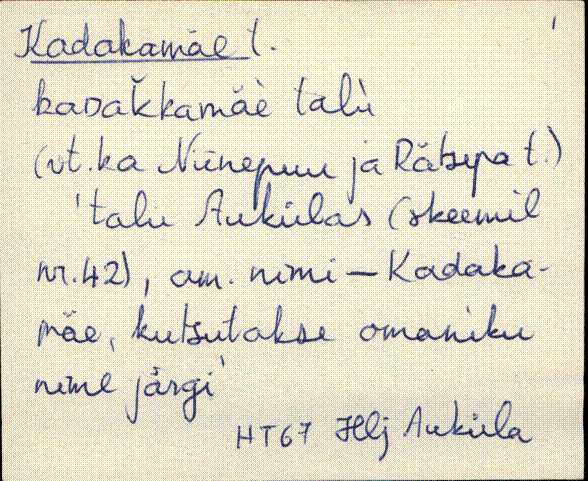 Kadakamäe t.
kaᴅak̆kamäè talù
(vt. ka Niinepuu ja Rätsepa t.)
'talu Aukülas (skeemil
nr. 42), am. nimi – Kadaka-
mäe, kutsutakse omaniku
nime järgi'
HT67 Hlj Auküla